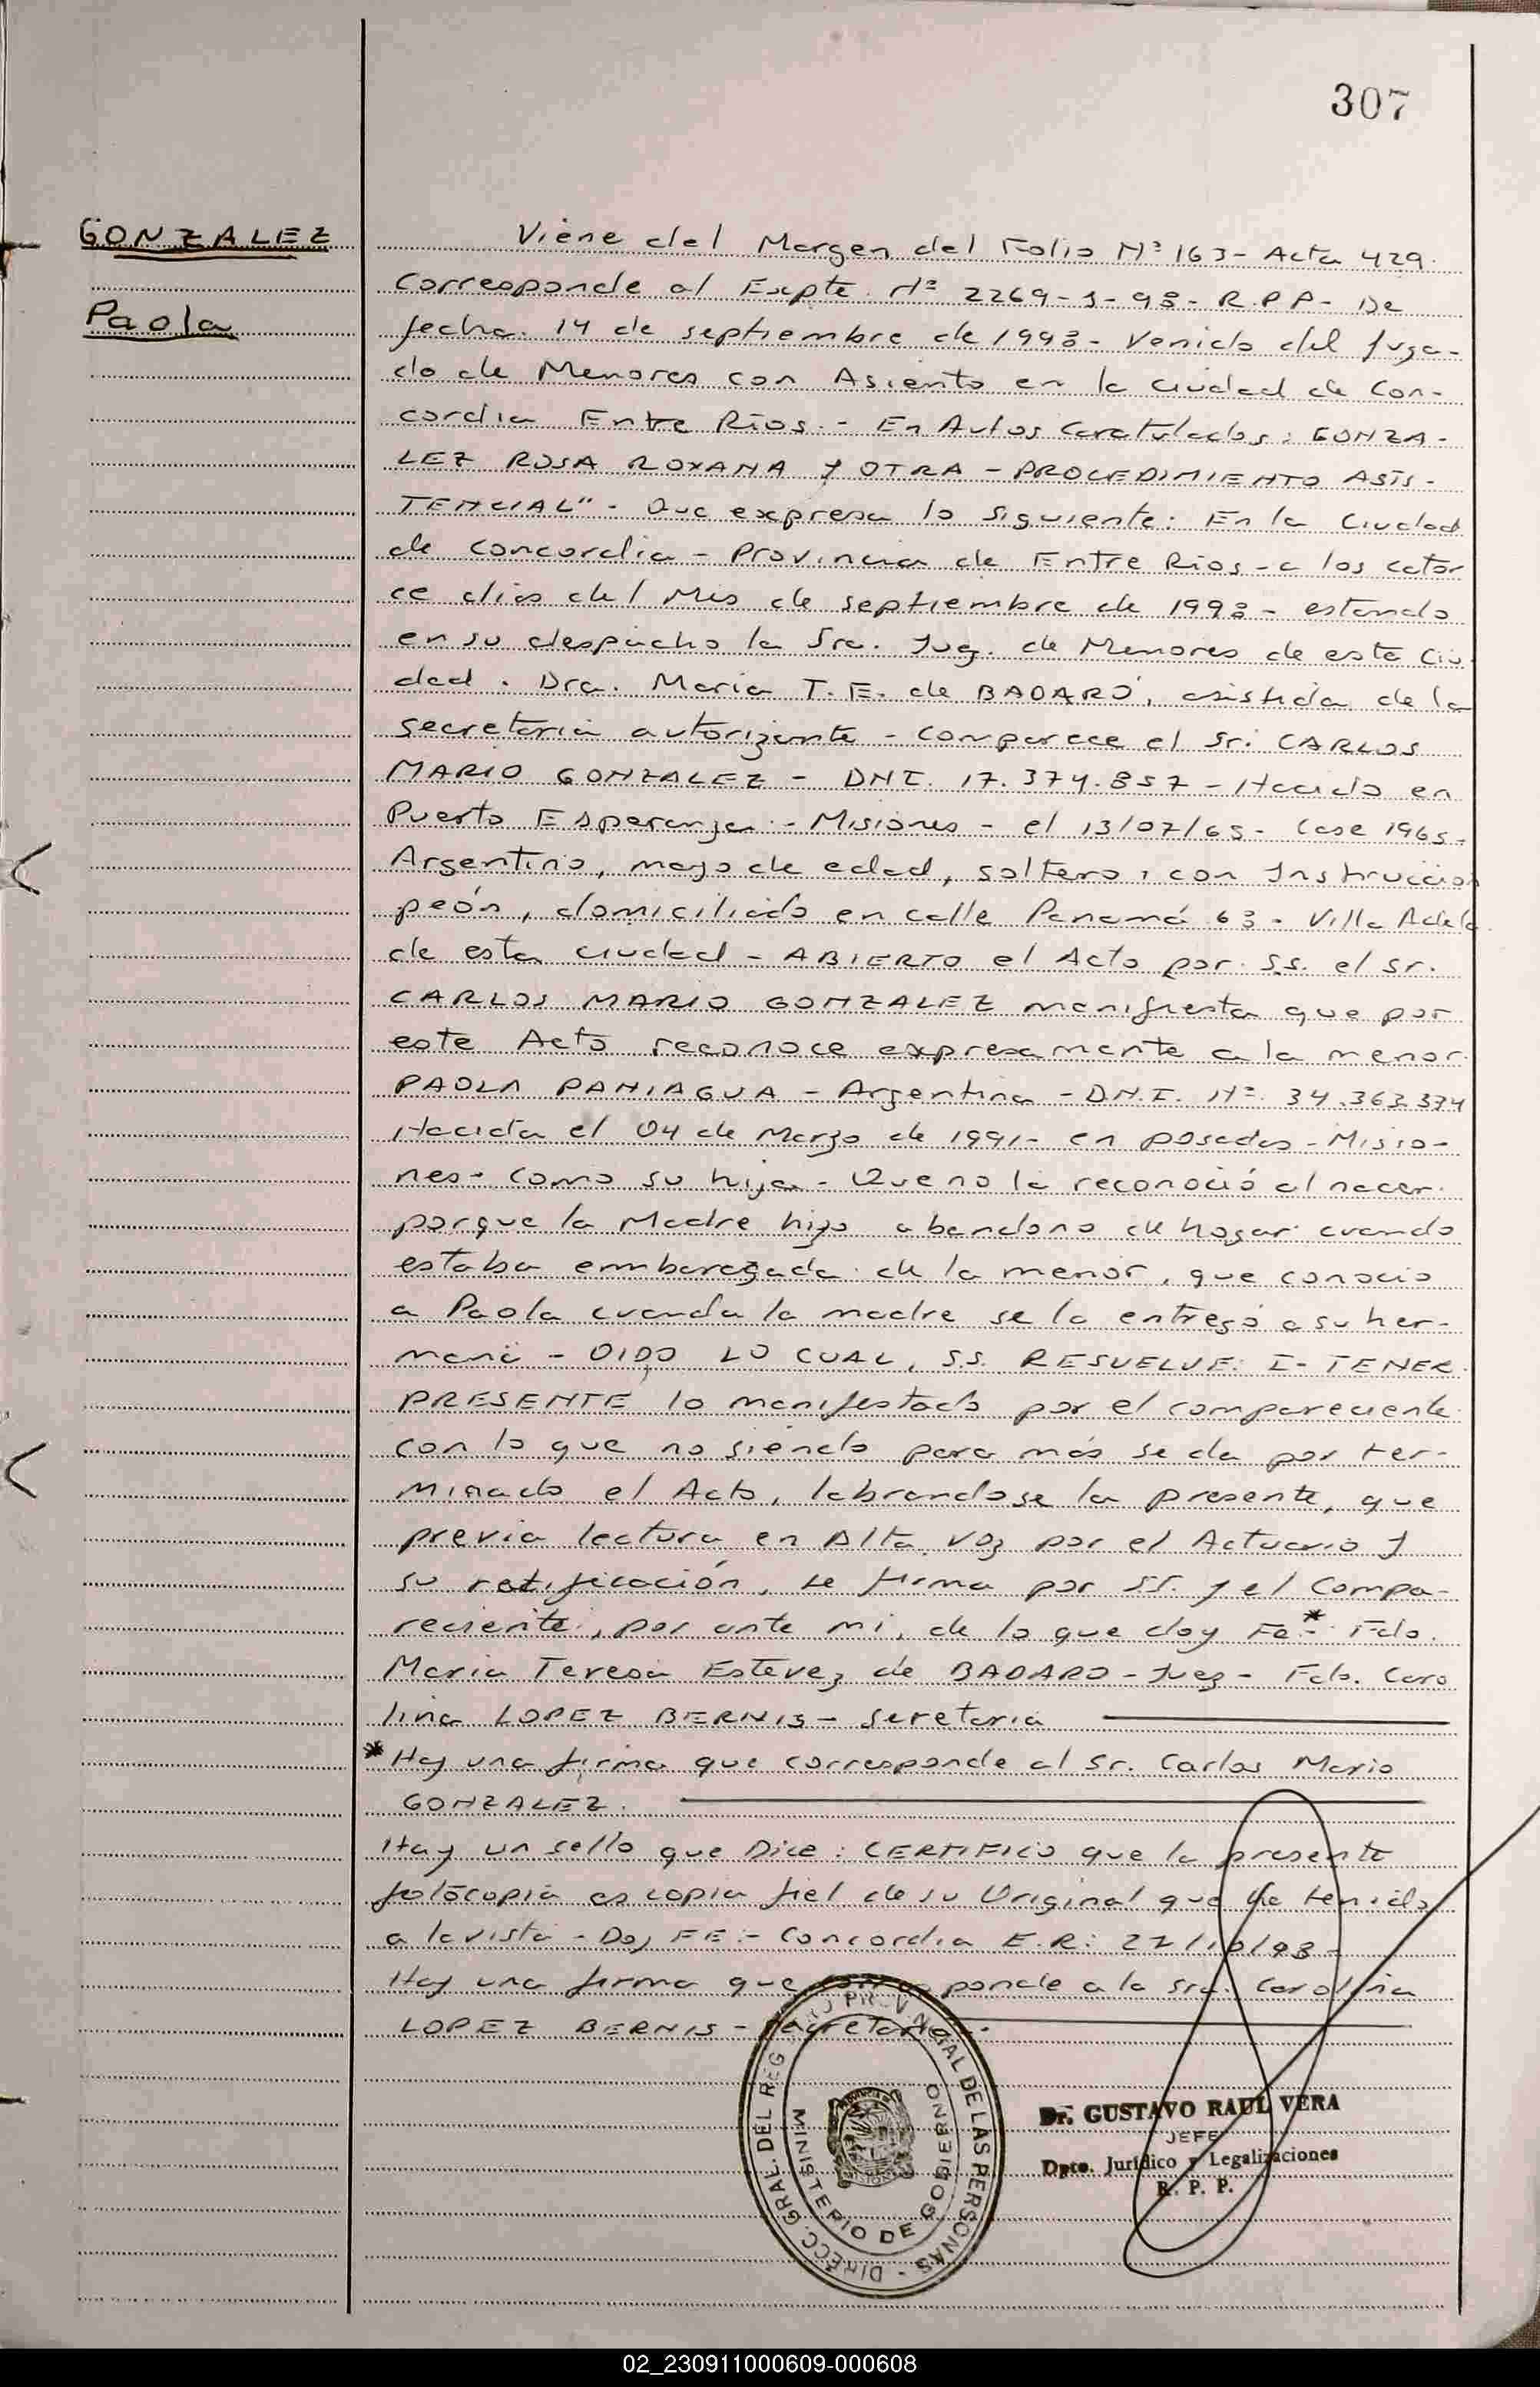 307
GONZALEZ
Paola
Viene del Margen del Folio Nº 163- Acta 429.
Corresponde al Expte. Nº 2269-S-98- R.P.P- De
fecha. 14 de septiembre de 1998- Venido del Juga-
do de Menores con Asiento en la ciudad de Con-
cordia Entre Rios.- En Autos Caratulados: GONZA-
LEZ ROSA ROXANA Y OTRA - PROCEDIMIENTO ASIS-
TENCIAL"- Que expresa lo siguiente: En la Ciudad
de Concordia - Provincia de Entre Rios - a los cator
ce dias del Mes de septiembre de 1998 - estando
en su despacho la Sra. Juez. de Menores de esta Ciu
dad. Dra. Maria T. E. de BADARÓ, asistida de la
secretaria autorizante - comparece el Sr. CARLOS
MARIO GONZALEZ - DNI. 17.374.857 - Nacido en
Puerto Esperanza - Misiones - el 13/07/65- Case 1965-
Argentino, mayo de edad, soltero, con Instruccion
peón, domiciliado en calle Panamá 63 - Villa Adela
de esta ciudad - ABIERTO el Acto por S.S. el Sr.
CARLOS MARIO GONZALEZ manifiesta que por
este Acto reconoce expresamente a la menor
PAOLA PANIAGUA - Argentina - D.N.I. Nº 34.362.374
Nacida el 04 de Marzo de 1991- en posadas - Misio-
nes- como su hija - Que no la reconoció al nacer
porque la Madre hizo abandono de hogar cuando
estaba embarazada de la menor, que conocio
a Paola cuando la madre se la entregó a su her-
mana - OIDO LO CUAL, S.S. RESUELVE: I- TENER
PRESENTE lo manifestado por el compareciente
con lo que no siendo para más se da por ter-
minado el Acto, labrandose la presente, que
previa lectura en Alta voz por el Actuario y
su ratificación, se firma por SS. y el Compa-
reciente, por ante mi, de lo que doy Fe*- Fdo.
Maria Teresa Estevez de BADARO - Juez - Fdo. Caro
lina LOPEZ BERNIS - Secretaria
*Hay una firma que corresponde al Sr. Carlos Mario
GONZALEZ.
Hay un sello que Dice: CERTIFICO que la presente
fotocopia es copia fiel de su Original que he tenido
a la vista - Doy FE:- Concordia E.R: 27/10/98-
Hay una firma que corresponde a la Sra. Carolina
LOPEZ BERNIS - Secretaria.
DIRECC. GRAL. DEL REG PROVINCIAL DE LAS PERSONAS -
MINISTERIO DE GOBIERNO
Dr. GUSTAVO RAUL VERA
JEFE
Dpto. Jurídico y Legalizaciones
R. P. P.
02_230911000609-000608